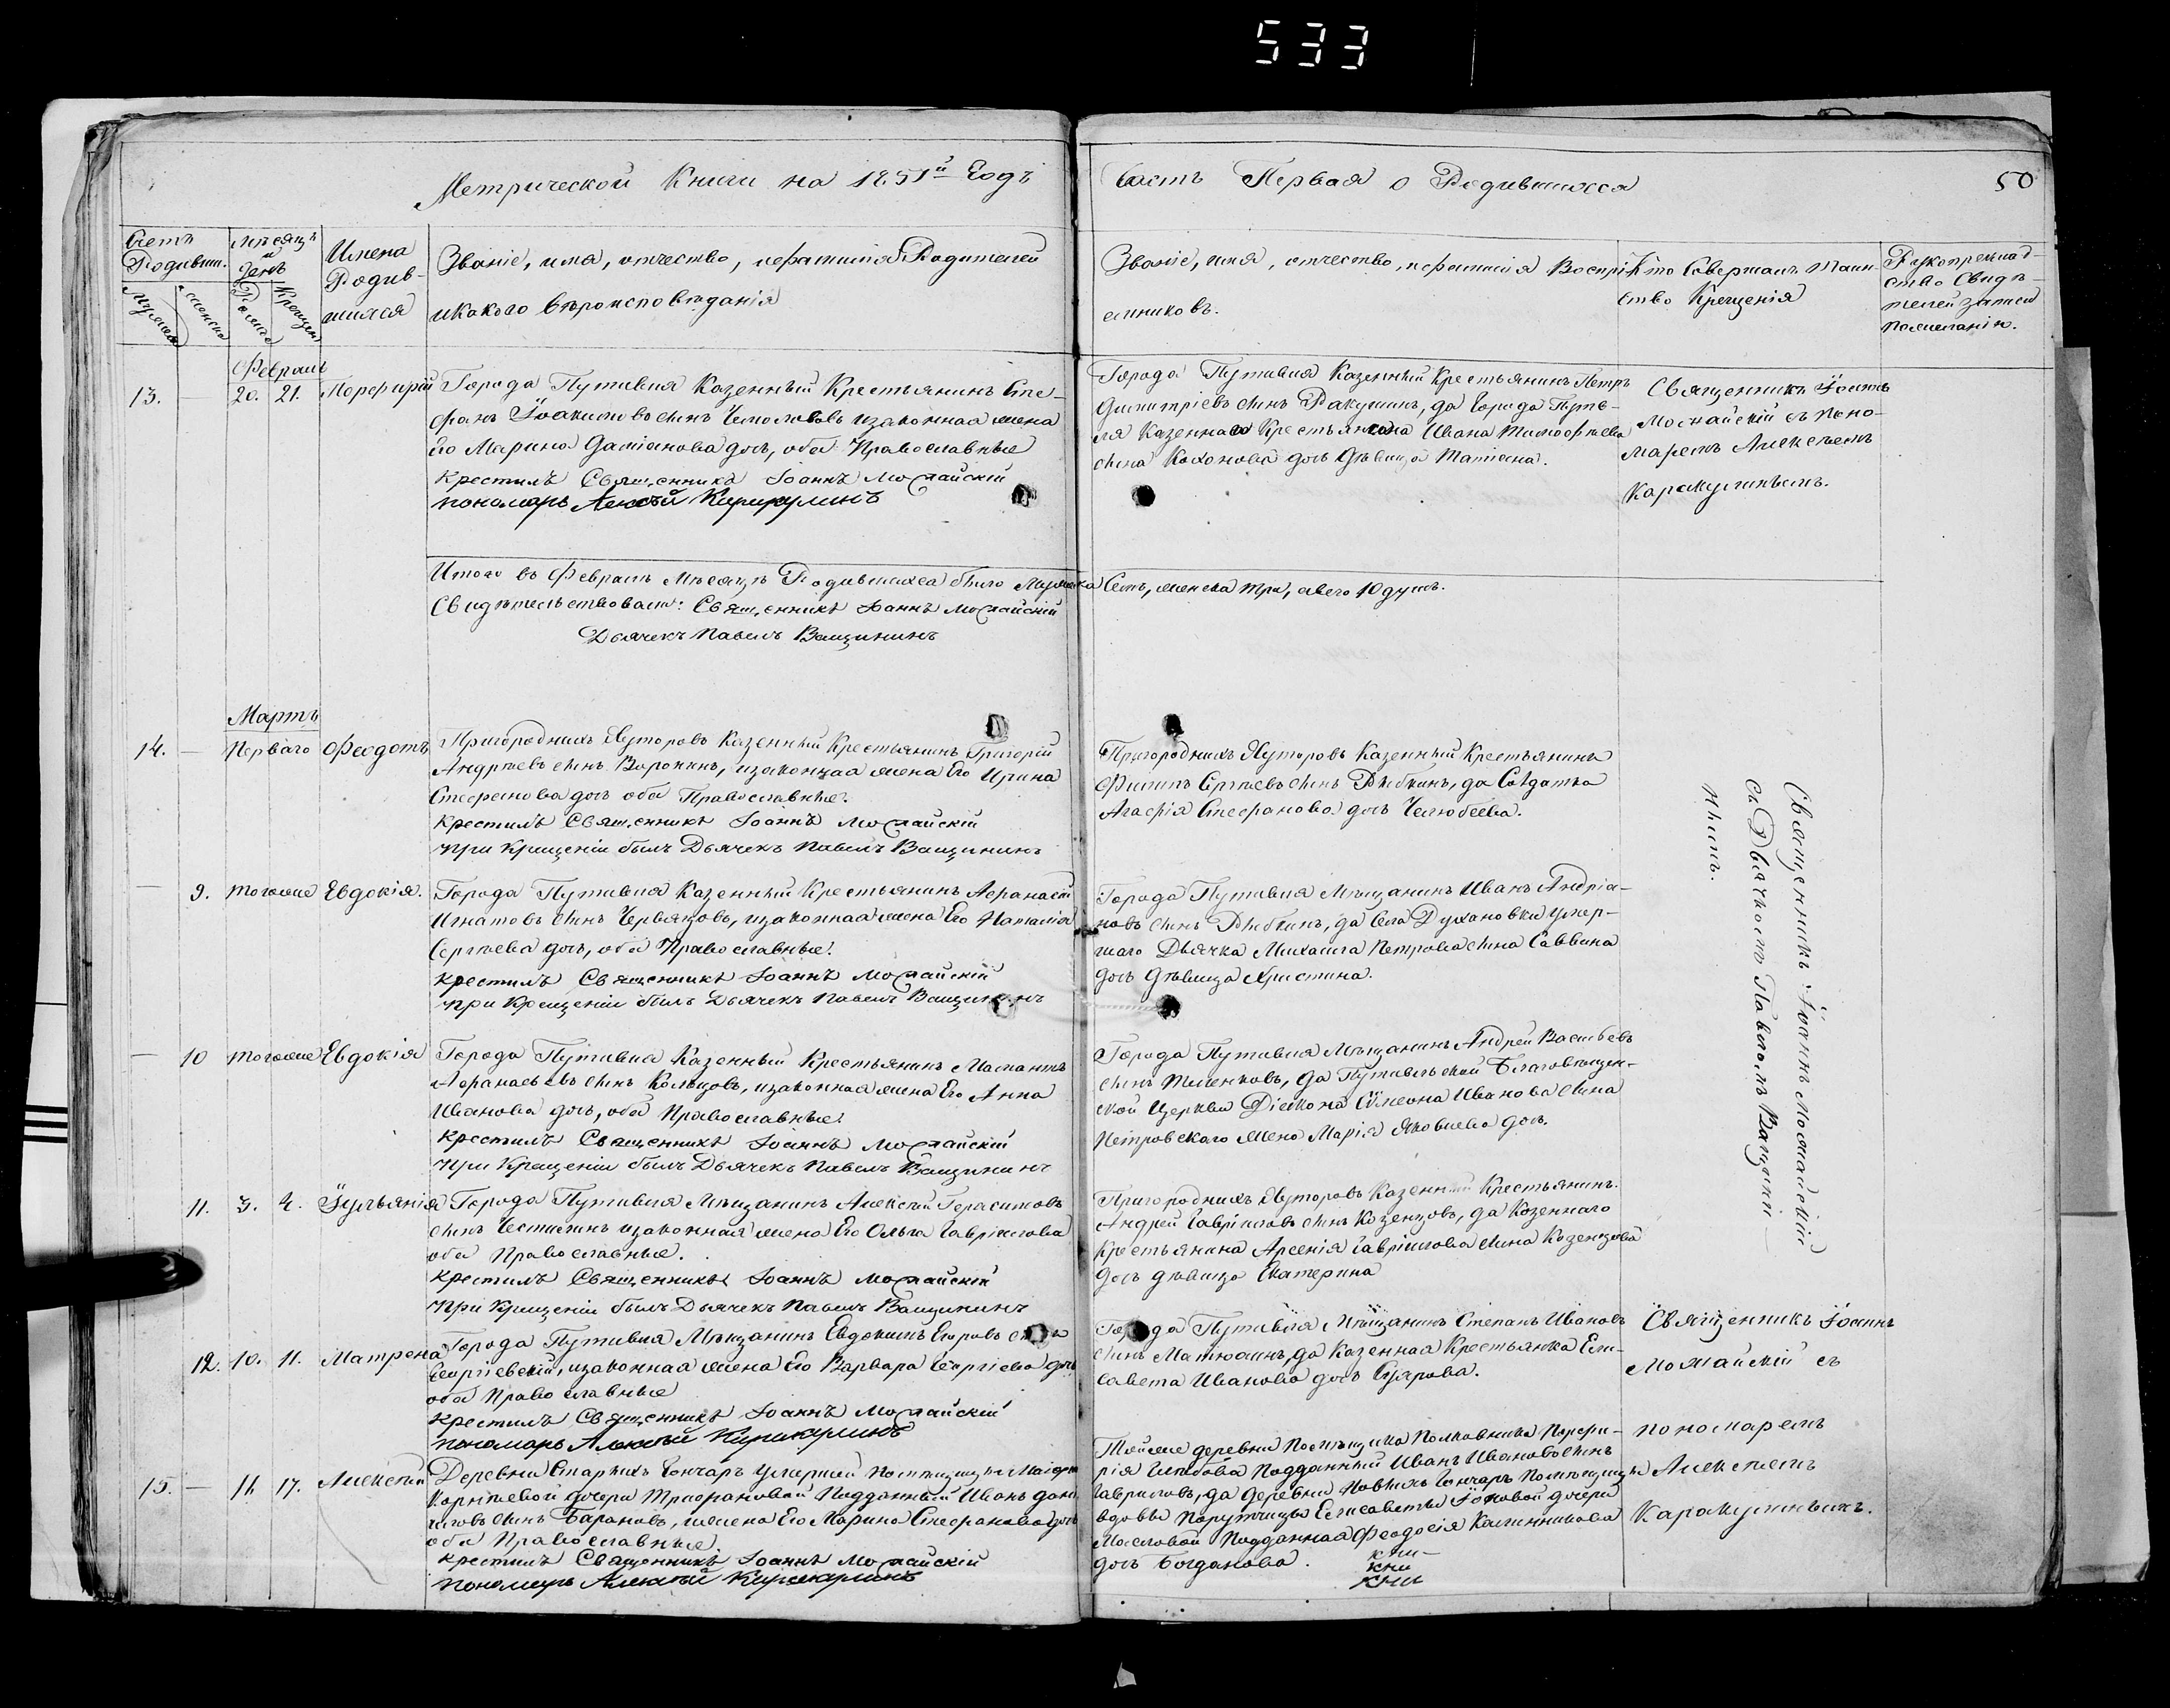 533
Метрической Книги на 1851й Годъ
Часть Первая о Родившихся
50
Счетъ Родивш.
Мужеска
Женска
Мѣсяцъ и день
Рожд.
Крещен.
Имена Родив-
шихся
Званіе, имя, отчество, и фамилія Родителей
и какого вѣроисповѣданія
Званіе, имя, отчество, и фамилія Воспрі-
емниковъ.
Кто Совершалъ Таин-
ство Крещенія
Рукоприклад-
ство Свидѣ-
телей записи
по желанію.
Февраль
13. — 20. 21. Порфирій
Города Путивля Казенный Крестьянинъ Сте-
фанъ Іоакимовъ сынъ законная жена
его Марина Даміанова дочь, оба Православные
Крестилъ Священникъ Іоаннъ Можайскій
пономарь Алексѣй Каракулинъ
Города Путивля Казенный Крестьянинъ Петръ
Димитріевъ сынъ Ракушинъ, да Города Пути-
ля Казеннаго Крестьянина Ивана Тимофѣева
сына Кахонова дочь дѣвица Татіана.
Священникъ Іоаннъ
Можайскій съ поно-
маремъ Алексѣемъ
Каракулинымъ.
Итого въ Февралѣ Мѣсяцѣ Родившихся было Мужеска Семь, женска три, а всего 10 душъ.
Свидѣтельствовали: Священникъ Іоаннъ Можайскій
Дьячекъ Павелъ Ващининъ
Мартъ
14. — Перваго Феодотъ
Пригородныхъ Хуторовъ Казенный Крестьянинъ Григорій
Андрѣевъ сынъ Воронинъ, изаконная жена Его Ирина
Стефанова дочь оба Православные.
Крестилъ Священникъ Іоаннъ Можайскій
при Крещеніи былъ Дьячекъ Павелъ Ващининъ
Пригородныхъ Хуторовъ Казенный Крестьянинъ
Филипъ Сергѣевъ сынъ Рыбкинъ, да Солдатка
Агафія Стефанова дочь Челюбеева.
Священникъ Іоаннъ Можайскій
съ Дьячкомъ Павломъ Ващини-
нымъ.
— 9. тогоже Евдокія.
Города Путивля Казенный Крестьянинъ Афанасій
Игнатовъ сынъ Червяковъ, изаконная жена Его Наталія
Сергѣева дочь, оба Православные.
Крестилъ Священникъ Іоаннъ Можайскій
при Крещеніи былъ Дьячекъ Павелъ Ващининъ
Города Путивля Мѣщанинъ Иванъ Андріа-
новъ сынъ Рыбкинъ, да Села Духановки умер-
шаго Дьячка Михаила Петрова сына Саввина
дочь Дѣвица Христина.
— 10 тогоже Евдокія
Города Путивля Казенный Крестьянинъ
Афанасьевъ сынъ Кольцовъ, изаконная жена Его Анна
Иванова дочь, оба Православные.
Крестилъ Священникъ Іоаннъ Можайскій
при Крещеніи былъ Дьячекъ Павелъ Ващининъ
Города Путивля Мѣщанинъ Андрей Васильевъ
сынъ, да Путивльской Благовѣщен-
ской Церкви Діакона Симеона Иванова сына
Петровскаго Жена Марія Яковлева дочь.
11. 3. 4. Іульянія
Города Путивля Мѣщанинъ Алексѣй Герасимовъ
сынъ изаконная жена Его Ольга Гавріилова
оба Православные.
Крестилъ Священникъ Іоаннъ Можайскій
при Крещеніи былъ Дьячекъ Павелъ Ващининъ
Пригородныхъ Хуторовъ Казенный Крестьянинъ
Андрей Гавріиловъ сынъ Козенцовъ, да Козеннаго
Крестьянина Арсенія Гавріилова сына Козенцова
дочь дѣвица Екатерина
12. 10. 11. Матрена
Города Путивля Мѣщанинъ Евдокимъ Егоровъ сынъ
Георгіевскій, изаконная жена Его Варвара Георгіева дочь
оба Православные
Крестилъ Священникъ Іоаннъ Можайскій
пономарь Алексѣй Каракулинъ
Города Путивля Мѣщанинъ Степанъ Ивановъ
сынъ Матюшинъ, да Казенная Крестьянка Ели-
савета Иванова дочь.
Священникъ Іоаннъ
Можайскій съ
пономаремъ
Алексѣемъ
Каракулинымъ.
15. — 16. 17. Алексѣй
Деревни Старыхъ Гончаръ умершей помѣщицы
дочери Подданный Иванъ Дани-
ловъ сынъ Барановъ, жена Его Марина Стефанова дочь
оба Православные.
Крестилъ Священникъ Іоаннъ Можайскій
пономарь Алексѣй Каракулинъ
Тойже деревни Помѣщика Полковника Порфи-
рія Глѣбова Подданный Иванъ Ивановъ сынъ
Гавриловъ, да деревни Новыхъ Гончаръ Помѣщицы
вдовы Порутчицы Елисаветы дочери
Масловой Подданная Феодосія Калинникова
дочь Богданова.
кни-
кни
кни